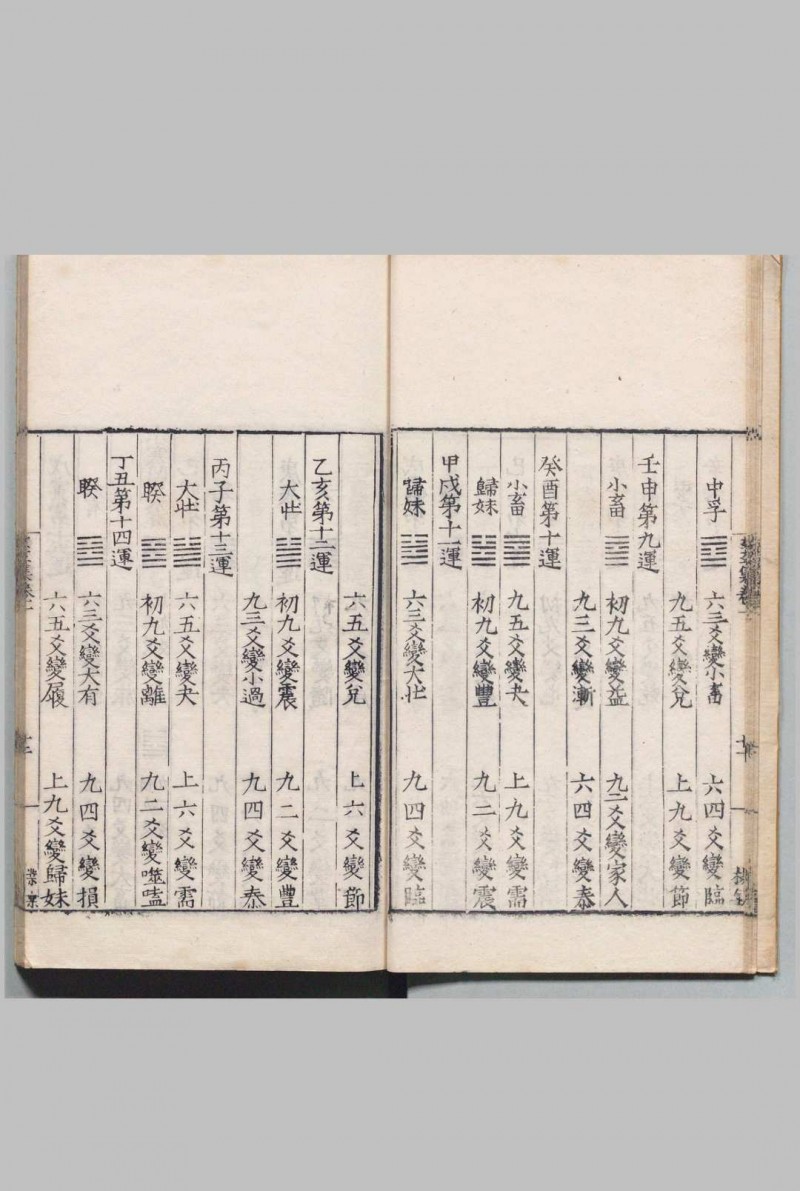 中孚 ䷼ 六三爻變小畜 六四爻變臨
九五爻變兌 上九爻變節
壬申第九運
小畜 ䷈ 初九爻變益 九二爻變家人
九三爻變漸 六四爻變泰
癸酉第十運
小畜 ䷈ 九五爻變夬 上九爻變需
歸妹 ䷵ 初九爻變豐 九二爻變震
甲戌第十一運
歸妹 ䷵ 六三爻變大壯 九四爻變臨
六五爻變兌 上六爻變節
乙亥第十二運
大壯 ䷡ 初九爻變震 九二爻變豐
九三爻變小過 九四爻變泰
丙子第十三運
大壯 ䷡ 六五爻變夬 上六爻變需
睽 ䷥ 初九爻變離 九二爻變噬嗑
丁丑第十四運
睽 ䷥ 六三爻變大有 九四爻變損
六五爻變履 上九爻變歸妹